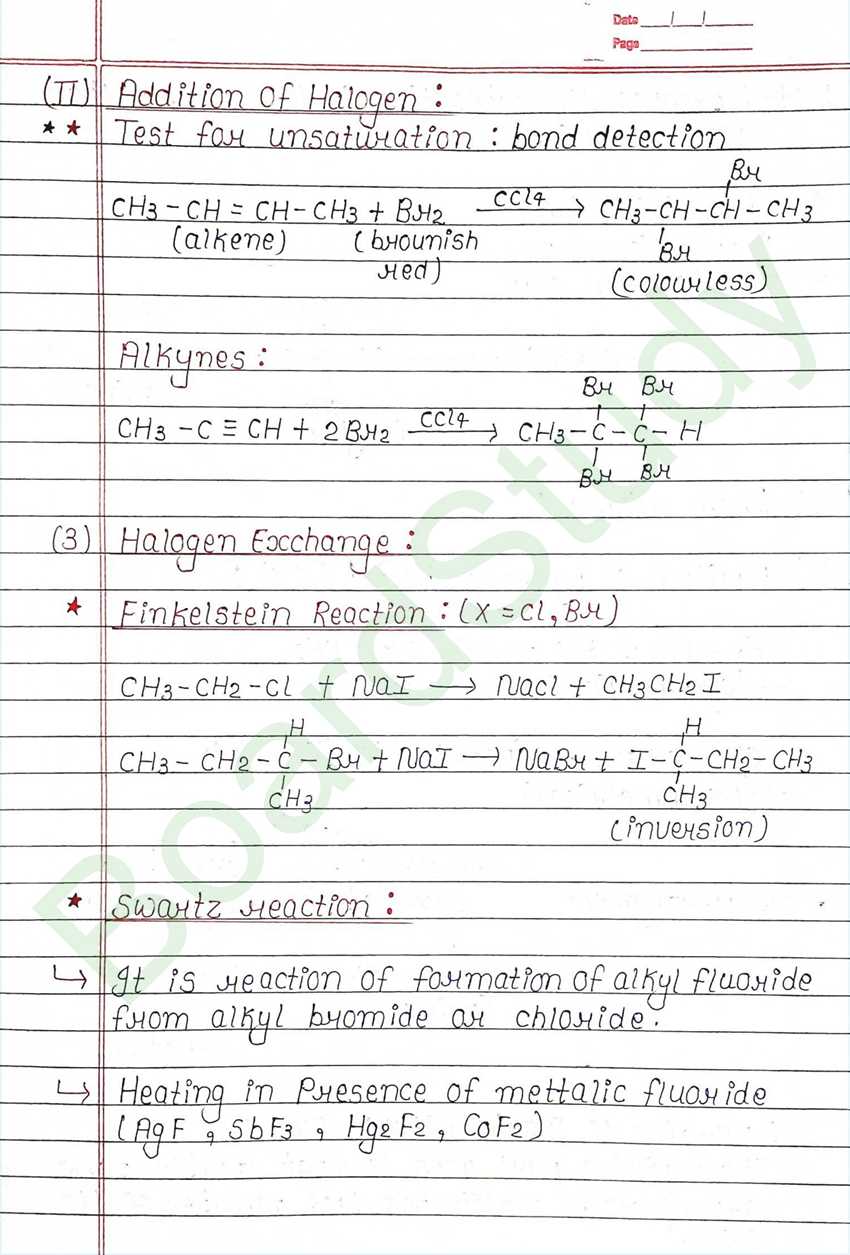 Date __/__/__
Page
(II) Addition Of Halogen :
** Test for unsaturation : bond detection
Br
CH3 - CH = CH - CH3 + Br2 CCl4 → CH3-CH-CH-CH3
(alkene) (brounish Br
red) (colourless)
Alkynes :
Br Br
CH3 - C ≡ CH + 2Br2 CCl4 → CH3 - C - C - H
Br Br
(3) Halogen Excchange :
* Finkelstein Reaction : (X = Cl, Br)
CH3 - CH2 - Cl + NaI → Nacl + CH3CH2I
H H
CH3 - CH2 - C - Br + NaI → NaBr + I - C - CH2 - CH3
CH3 CH3
(inversion)
* Swartz reaction :
↳ It is reaction of formation of alkyl fluoride
from alkyl bromide or chloride.
↳ Heating in Presence of mettalic fluoride
(AgF, SbF3, Hg2F2, CoF2)
BoardStudy